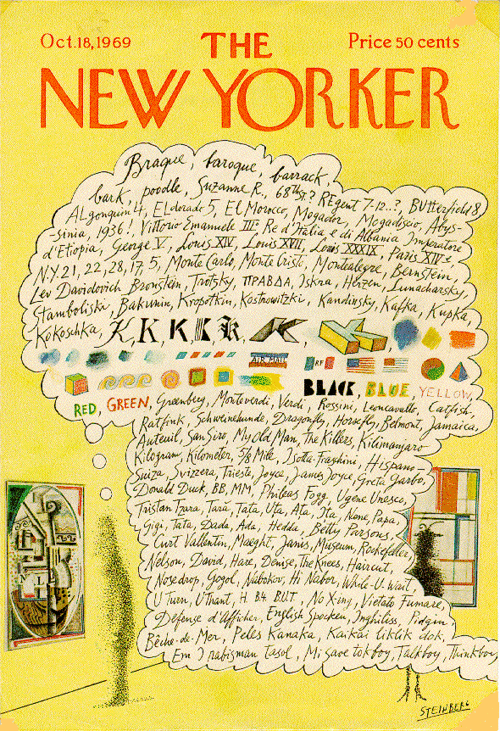 Oct.18,1969
THE
Price 50 cents
NEW YORKER
Braque, baroque, barrack,
bark, poodle, Suzanne R., 68th St? REgent 7-12..?, BUtterfield 8
ALgonquin 4, ELdorado 5, El Morocco, Mogador, Mogadiscio, Abys-
sinia, 1936!, Vittorio Emanuele III° Re d'Italia e di Albania Imperatore
d'Etiopia, George V, Louis XIV, Louis XVII, Louis XXXIX, Paris XIVe
N.Y. 21, 22, 28, 17, 5, Monte Carlo, Monte Cristi, Montealegre, Bernstein,
Lev Davidovich Bronstein, Trotsky, ПРАВДА, Iskra, Herzen, Lunacharsky,
Stamboliski, Bakunin, Kropotkin, Kostrowitzki, Kandinsky, Kafka, Kupka,
Kokoschka, K, K, K, K, K, K, K,
AIR MAIL
BLACK, BLUE, YELLOW,
RED, GREEN, Greenberg, Monteverdi, Verdi, Rossini, Leoncavallo, Catfish,
Ratfink, Schweinehunde, Dragonfly, Horsefly, Belmont, Jamaica,
Auteuil, San Siro, My Old Man, The Killers, Kilimanjaro
Kilogram, Kilometer, 5/8 Mile, Isotta-Fraschini, Hispano-
Suiza, Svizzera, Trieste, Joyce, James Joyce, Greta Garbo,
Donald Duck, BB, MM, Phileas Fogg, Ugene Unesco,
Tristan Tzara, Tara, Tata, Uta, Ata, Ita, Nono, Papa,
Gigi, Tata, Dada, Ada, Hedda, Betty Parsons,
Curt Vallentin, Maeght, Janis, Museum, Rockefeller,
Nelson, David, Hare, Denise, The Knees, Haircut,
Nose drop, Gogol, Nabokov, Hi Nabor, While-U-wait,
U Turn, U Thant, H. B4 BUT, No X-ing, Vietato Fumare,
Défense d'Afficher, English Spocken, Inghiliss, Pidgin
Bêche-de-Mer, Peles Kanaka, Kaikai liklik dok,
Em I rabisman tasol, Mi save tok boy, Talkboy, Thinkboy
STEINBERG